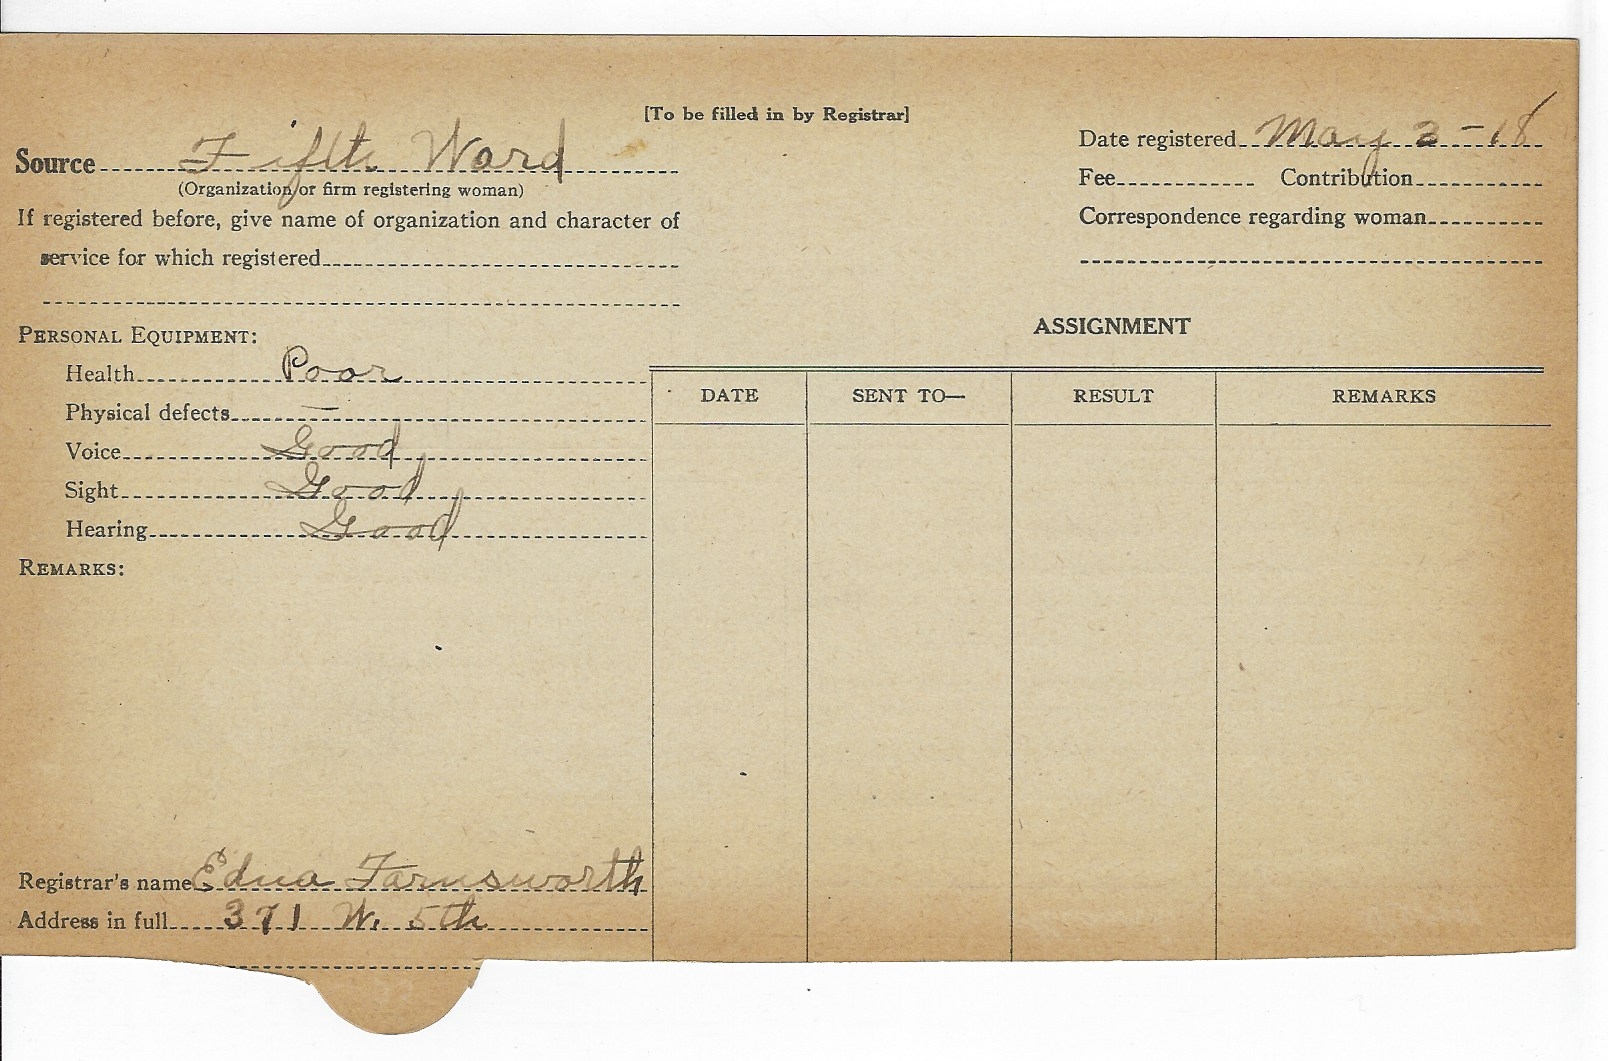 [To be filled in by Registrar]
Source Fifth Ward
(Organization or firm registering woman)
If registered before, give name of organization and character of
service for which registered
Date registered May 3-18
Fee Contribution
Correspondence regarding woman
PERSONAL EQUIPMENT:
Health Poor
Physical defects —
Voice Good
Sight Good
Hearing Good
REMARKS:
Registrar's name Edna Farnsworth
Address in full 371 W. 5th
ASSIGNMENT
DATE SENT TO— RESULT REMARKS